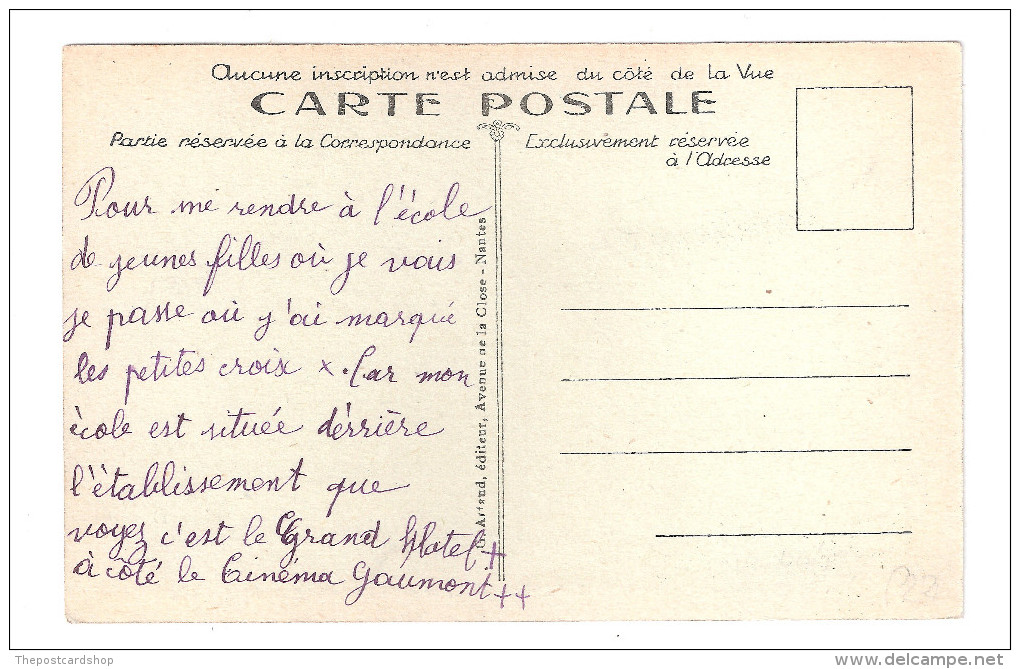 Aucune inscription n'est admise du côté de la Vue
CARTE POSTALE
Partie réservée à la Correspondance
Exclusivement réservée
à l'Adresse
Pour me rendre à l'école
de jeunes filles où je vais
je passe où j'ai marqué
les petites croix x. Car mon
école est située dérrière
l'établissement que
voyez c'est le Grand Hotel +
à côté le Cinéma Gaumont ++
Artaud, éditeur, Avenue de la Close - Nantes
Thepostcardshop
delcampe.net